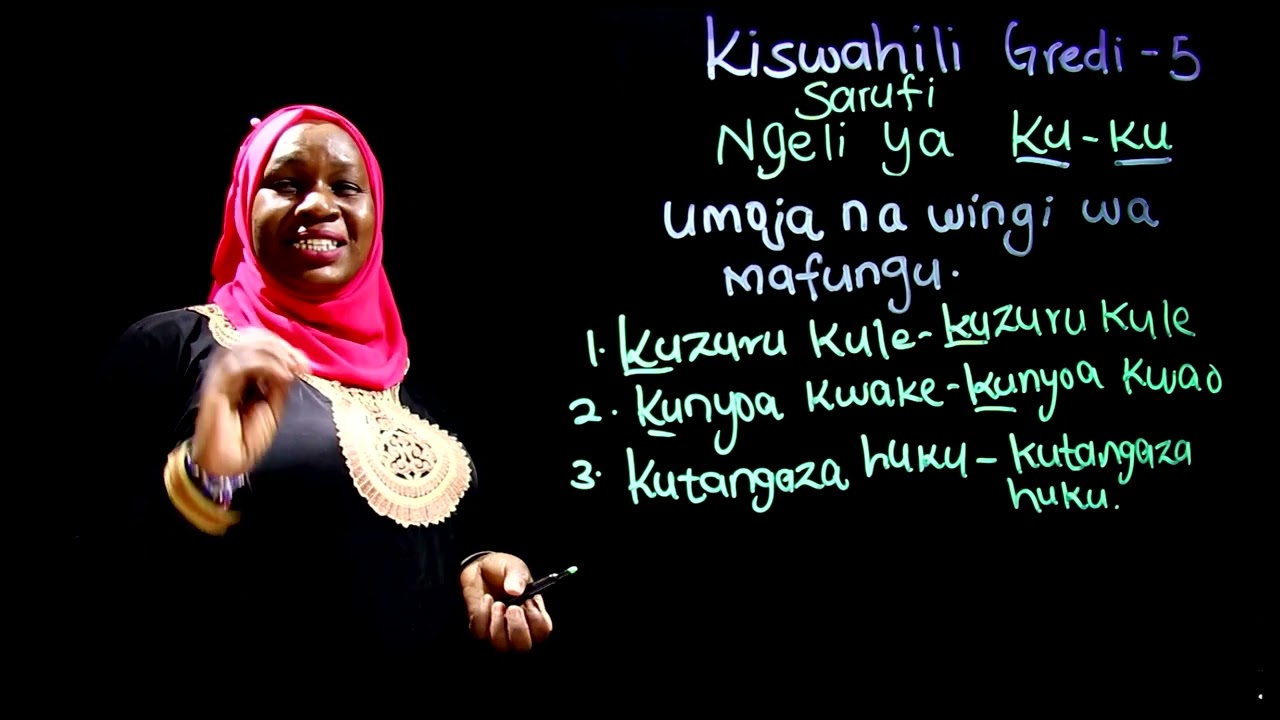 Kiswahili Gredi - 5
Sarufi
Ngeli ya Ku - Ku
Umoja na wingi wa
mafungu.
1. Kuzuru Kule - Kuzuru Kule
2. Kunyoa Kwake - Kunyoa Kwao
3. Kutangaza huku - Kutangaza
huku.